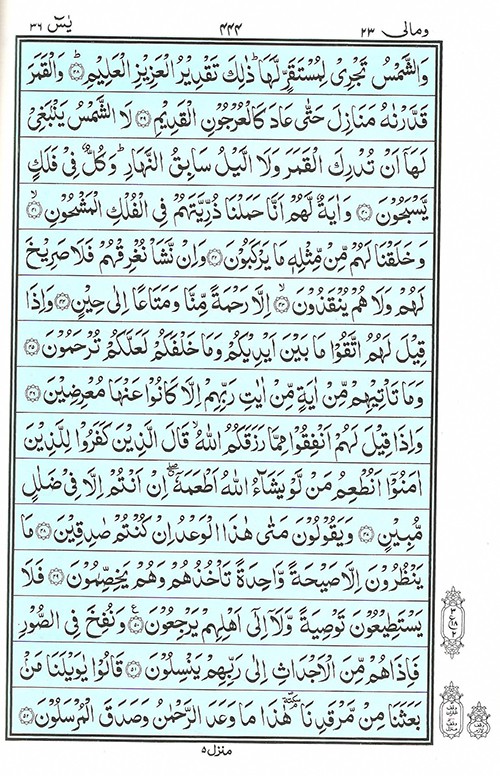 ومالی ۲۳ ۴۴۴ یٰسٓ ۳۶
وَالشَّمْسُ تَجْرِیْ لِمُسْتَقَرٍّ لَّهَا ؕ ذٰلِكَ تَقْدِیْرُ الْعَزِیْزِ الْعَلِیْمِ ۳۸ؕ وَالْقَمَرَ
قَدَّرْنٰهُ مَنَازِلَ حَتّٰی عَادَ كَالْعُرْجُوْنِ الْقَدِیْمِ ۳۹ لَا الشَّمْسُ یَنْۢبَغِیْ
لَهَاۤ اَنْ تُدْرِكَ الْقَمَرَ وَلَا الَّیْلُ سَابِقُ النَّهَارِ ؕ وَكُلٌّ فِیْ فَلَكٍ
یَّسْبَحُوْنَ ۴۰ وَاٰیَةٌ لَّهُمْ اَنَّا حَمَلْنَا ذُرِّیَّتَهُمْ فِی الْفُلْكِ الْمَشْحُوْنِ ۴۱ۙ
وَخَلَقْنَا لَهُمْ مِّنْ مِّثْلِهٖ مَا یَرْكَبُوْنَ ۴۲ وَاِنْ نَّشَاْ نُغْرِقْهُمْ فَلَا صَرِیْخَ
لَهُمْ وَلَا هُمْ یُنْقَذُوْنَ ۴۳ۙ اِلَّا رَحْمَةً مِّنَّا وَمَتَاعًا اِلٰی حِیْنٍ ۴۴ وَاِذَا
قِیْلَ لَهُمُ اتَّقُوْا مَا بَیْنَ اَیْدِیْكُمْ وَمَا خَلْفَكُمْ لَعَلَّكُمْ تُرْحَمُوْنَ ۴۵
وَمَا تَاْتِیْهِمْ مِّنْ اٰیَةٍ مِّنْ اٰیٰتِ رَبِّهِمْ اِلَّا كَانُوْا عَنْهَا مُعْرِضِیْنَ ۴۶
وَاِذَا قِیْلَ لَهُمْ اَنْفِقُوْا مِمَّا رَزَقَكُمُ اللّٰهُ ۙ قَالَ الَّذِیْنَ كَفَرُوْا لِلَّذِیْنَ
اٰمَنُوْۤا اَنُطْعِمُ مَنْ لَّوْ یَشَآءُ اللّٰهُ اَطْعَمَهٗۤ ۖ اِنْ اَنْتُمْ اِلَّا فِیْ ضَلٰلٍ
مُّبِیْنٍ ۴۷ وَیَقُوْلُوْنَ مَتٰی هٰذَا الْوَعْدُ اِنْ كُنْتُمْ صٰدِقِیْنَ ۴۸ مَا
یَنْظُرُوْنَ اِلَّا صَیْحَةً وَّاحِدَةً تَاْخُذُهُمْ وَهُمْ یَخِصِّمُوْنَ ۴۹ فَلَا
یَسْتَطِیْعُوْنَ تَوْصِیَةً وَّلَاۤ اِلٰۤی اَهْلِهِمْ یَرْجِعُوْنَ ۵۰ع وَنُفِخَ فِی الصُّوْرِ
فَاِذَا هُمْ مِّنَ الْاَجْدَاثِ اِلٰی رَبِّهِمْ یَنْسِلُوْنَ ۵۱ قَالُوْا یٰوَیْلَنَا مَنْۢ
بَعَثَنَا مِنْ مَّرْقَدِنَا سكتة هٰذَا مَا وَعَدَ الرَّحْمٰنُ وَصَدَقَ الْمُرْسَلُوْنَ ۵۲
منزل ۵